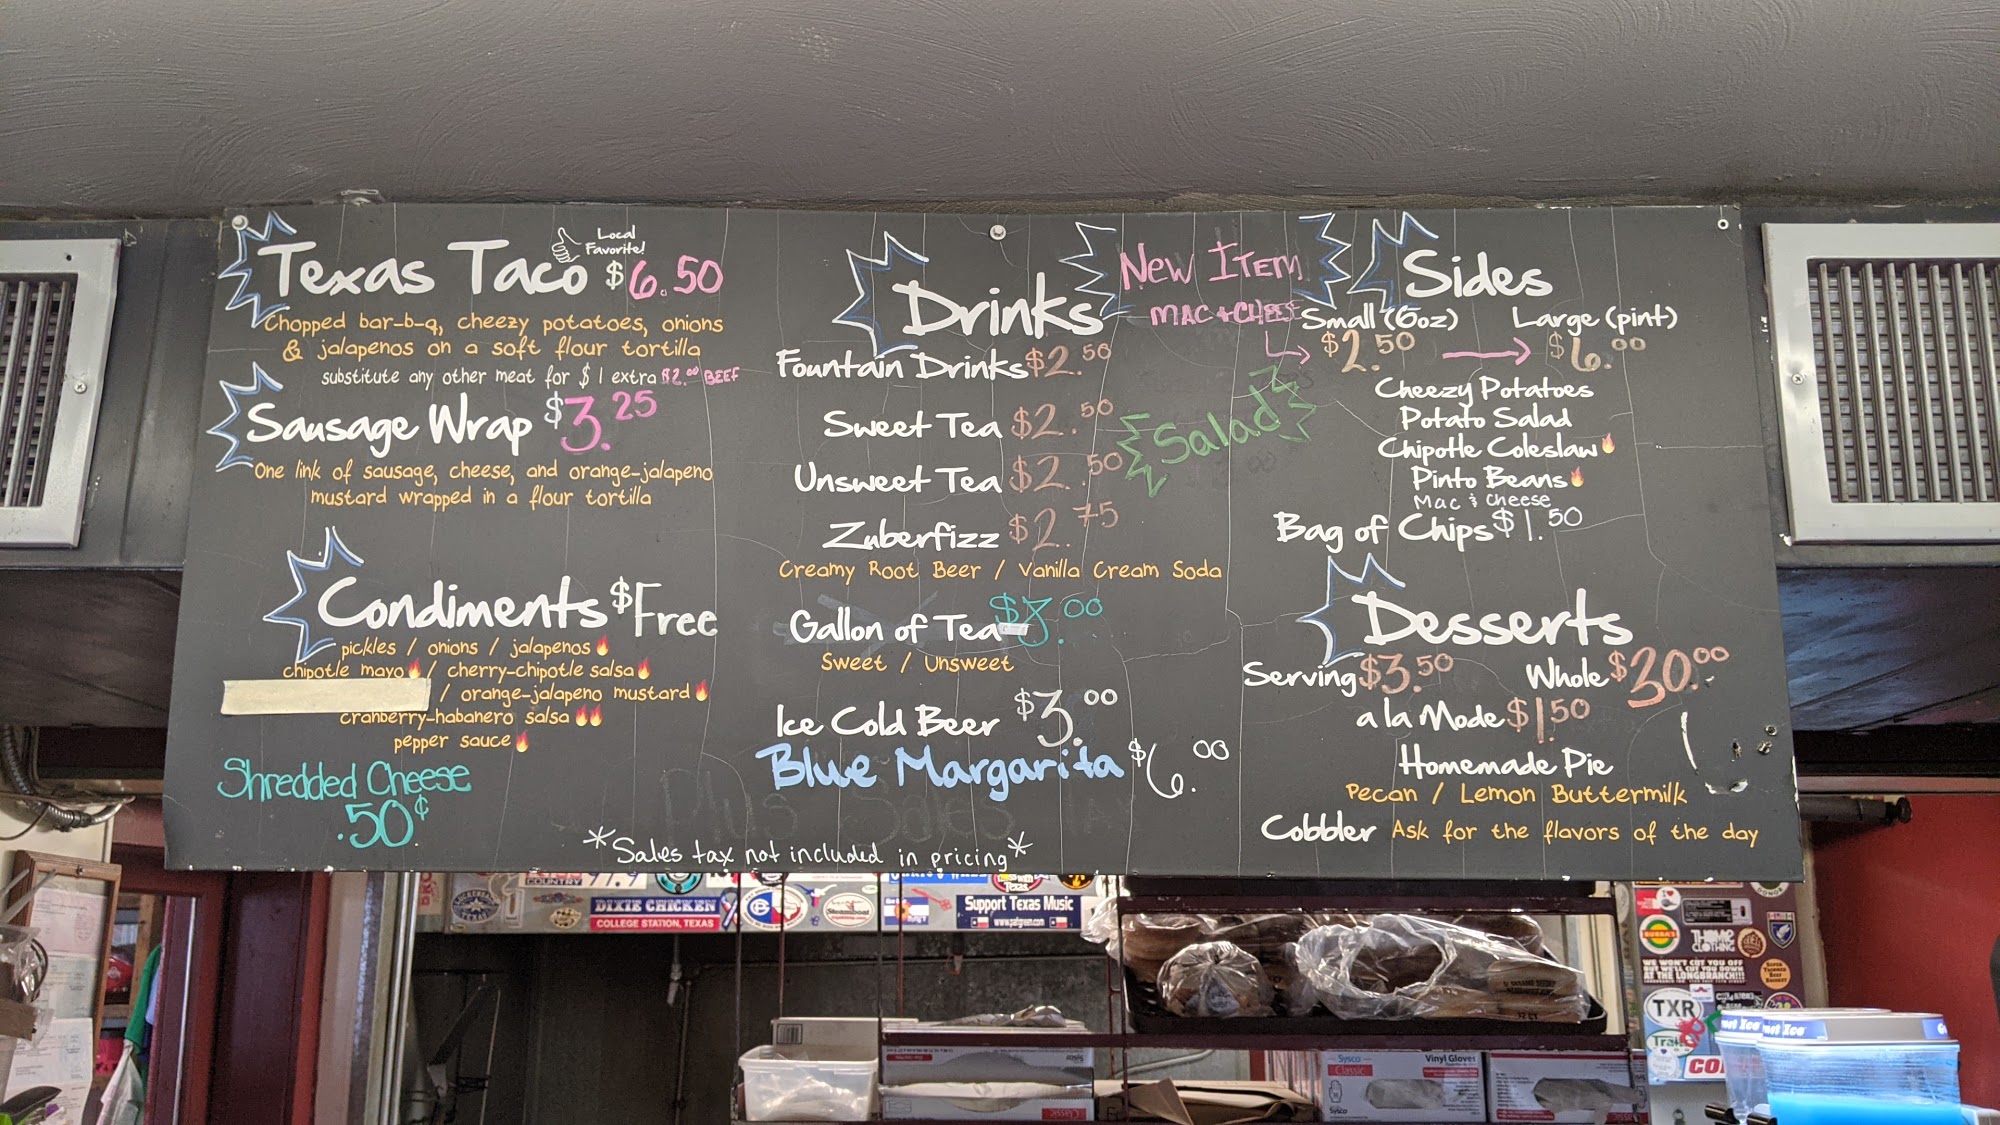 Texas Taco $6.50
Local Favorite!
Chopped bar-b-q, cheezy potatoes, onions
& jalapenos on a soft flour tortilla
substitute any other meat for $1 extra $2.00 BEEF
Sausage Wrap $3.25
One link of sausage, cheese, and orange-jalapeno
mustard wrapped in a flour tortilla
Condiments $Free
pickles / onions / jalapenos
chipotle mayo / cherry-chipotle salsa
/ orange-jalapeno mustard
cranberry-habanero salsa
pepper sauce
Shredded Cheese
.50¢
Drinks
Fountain Drinks $2.50
Sweet Tea $2.50
Unsweet Tea $2.50
Zuberfizz $2.75
Creamy Root Beer / Vanilla Cream Soda
Gallon of Tea $8.00
Sweet / Unsweet
Ice Cold Beer $3.00
Blue Margarita $6.00
*Sales tax not included in pricing*
New Item
Mac + Cheese
Salad
Sides
Small (6oz) Large (pint)
$2.50 $6.00
Cheezy Potatoes
Potato Salad
Chipotle Coleslaw
Pinto Beans
Mac & Cheese
Bag of Chips $1.50
Desserts
Serving $3.50 Whole $30.00
a la Mode $1.50
Homemade Pie
Pecan / Lemon Buttermilk
Cobbler Ask for the flavors of the day
DIXIE CHICKEN
COLLEGE STATION, TEXAS
Support Texas Music
BUBBA'S
THOMIC
CLOTHING
WE WON'T CUT YOU OFF
BUT WE'LL CUT YOU DOWN
AT THE LONGBRANCH!!!
TXR
Sysco
Classic
Vinyl Gloves
Sysco